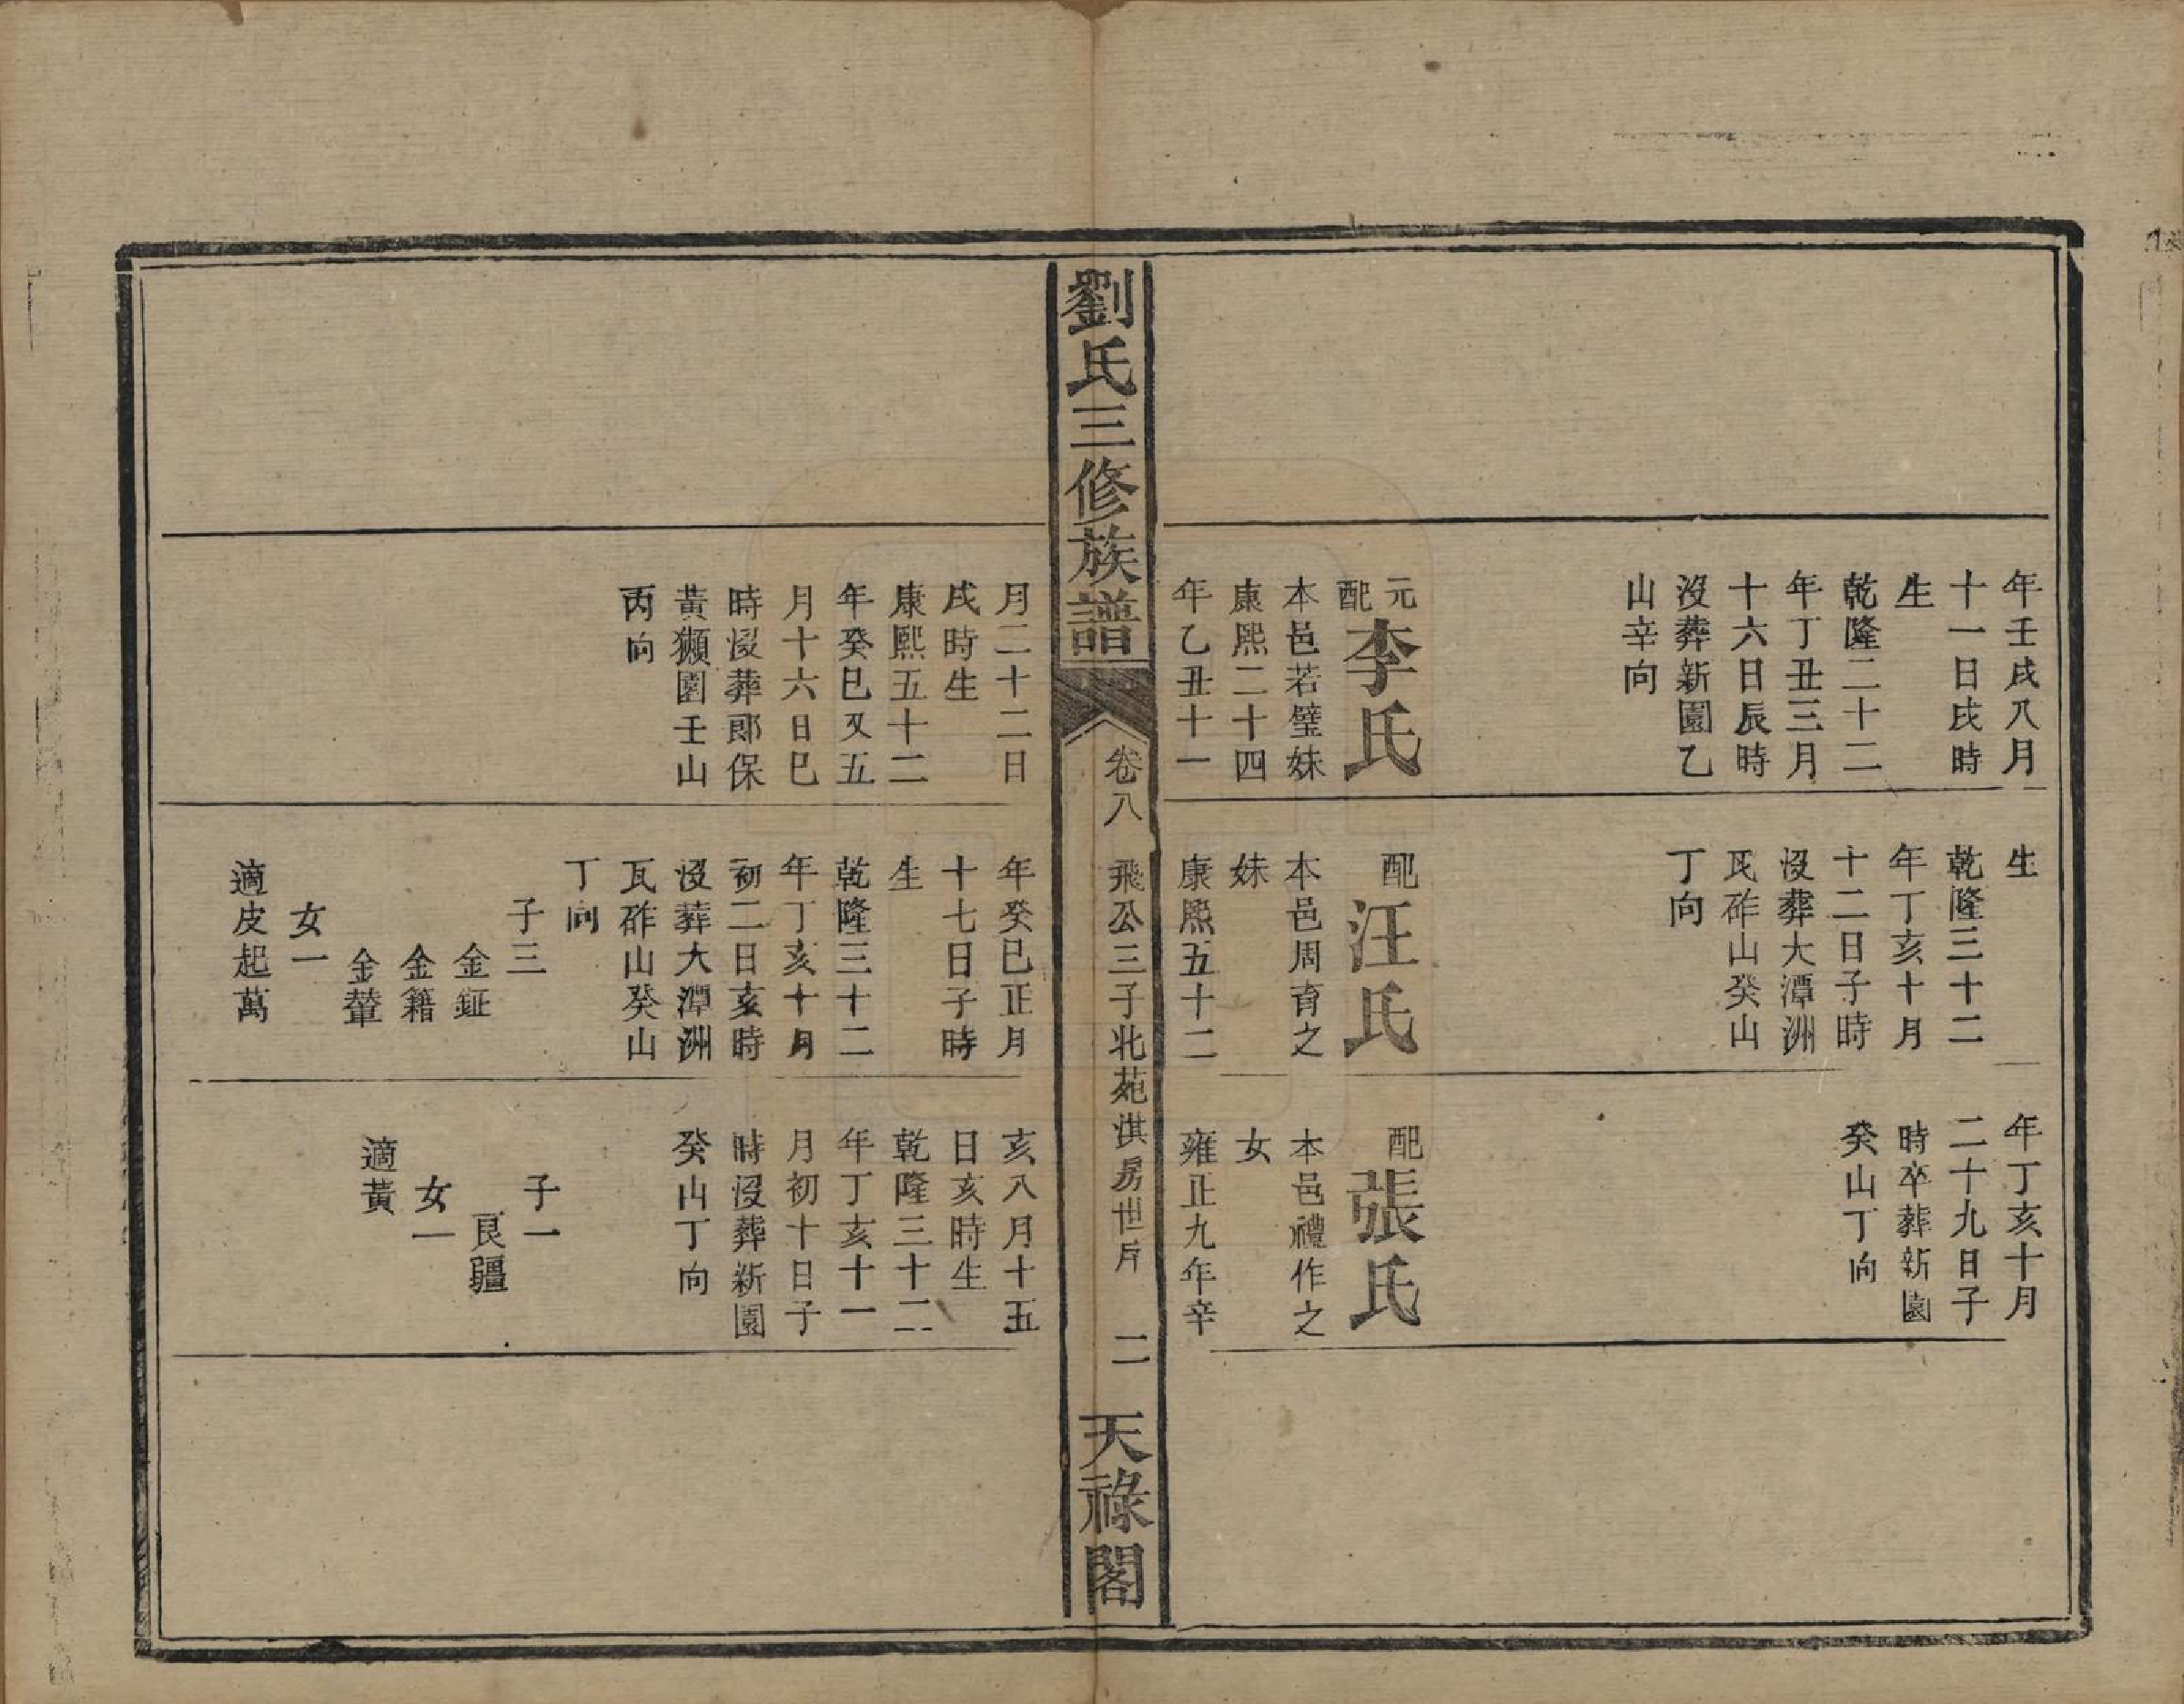 年壬戌八月
十一日戌時
生
乾隆二十二
年丁丑三月
十六日辰時
沒葬新園乙
山辛向
元配李氏
本邑若璧妹
康熙二十四
年乙丑十一
生
乾隆三十二
年丁亥十月
十二日子時
沒葬大潭洲
瓦砟山癸山
丁向
配汪氏
本邑周育之
妹
康熙五十二
年丁亥十月
二十九日子
時卒葬新園
癸山丁向
配張氏
本邑禮作之
女
雍正九年辛
劉氏三修族譜
卷八
飛公三子北苑淇房世斤
二
天祿閣
月二十二日
戌時生
康熙五十二
年癸巳又五
月十六日巳
時沒葬郎保
黃獺園壬山
丙向
年癸巳正月
十七日子時
生
乾隆三十二
年丁亥十月
初二日亥時
沒葬大潭洲
瓦砟山癸山
丁向
子三
金鉦
金籍
金輦
女一
適皮起萬
亥八月十五
日亥時生
乾隆三十二
年丁亥十一
月初十日子
時沒葬新園
癸山丁向
子一
艮疆
女一
適黃